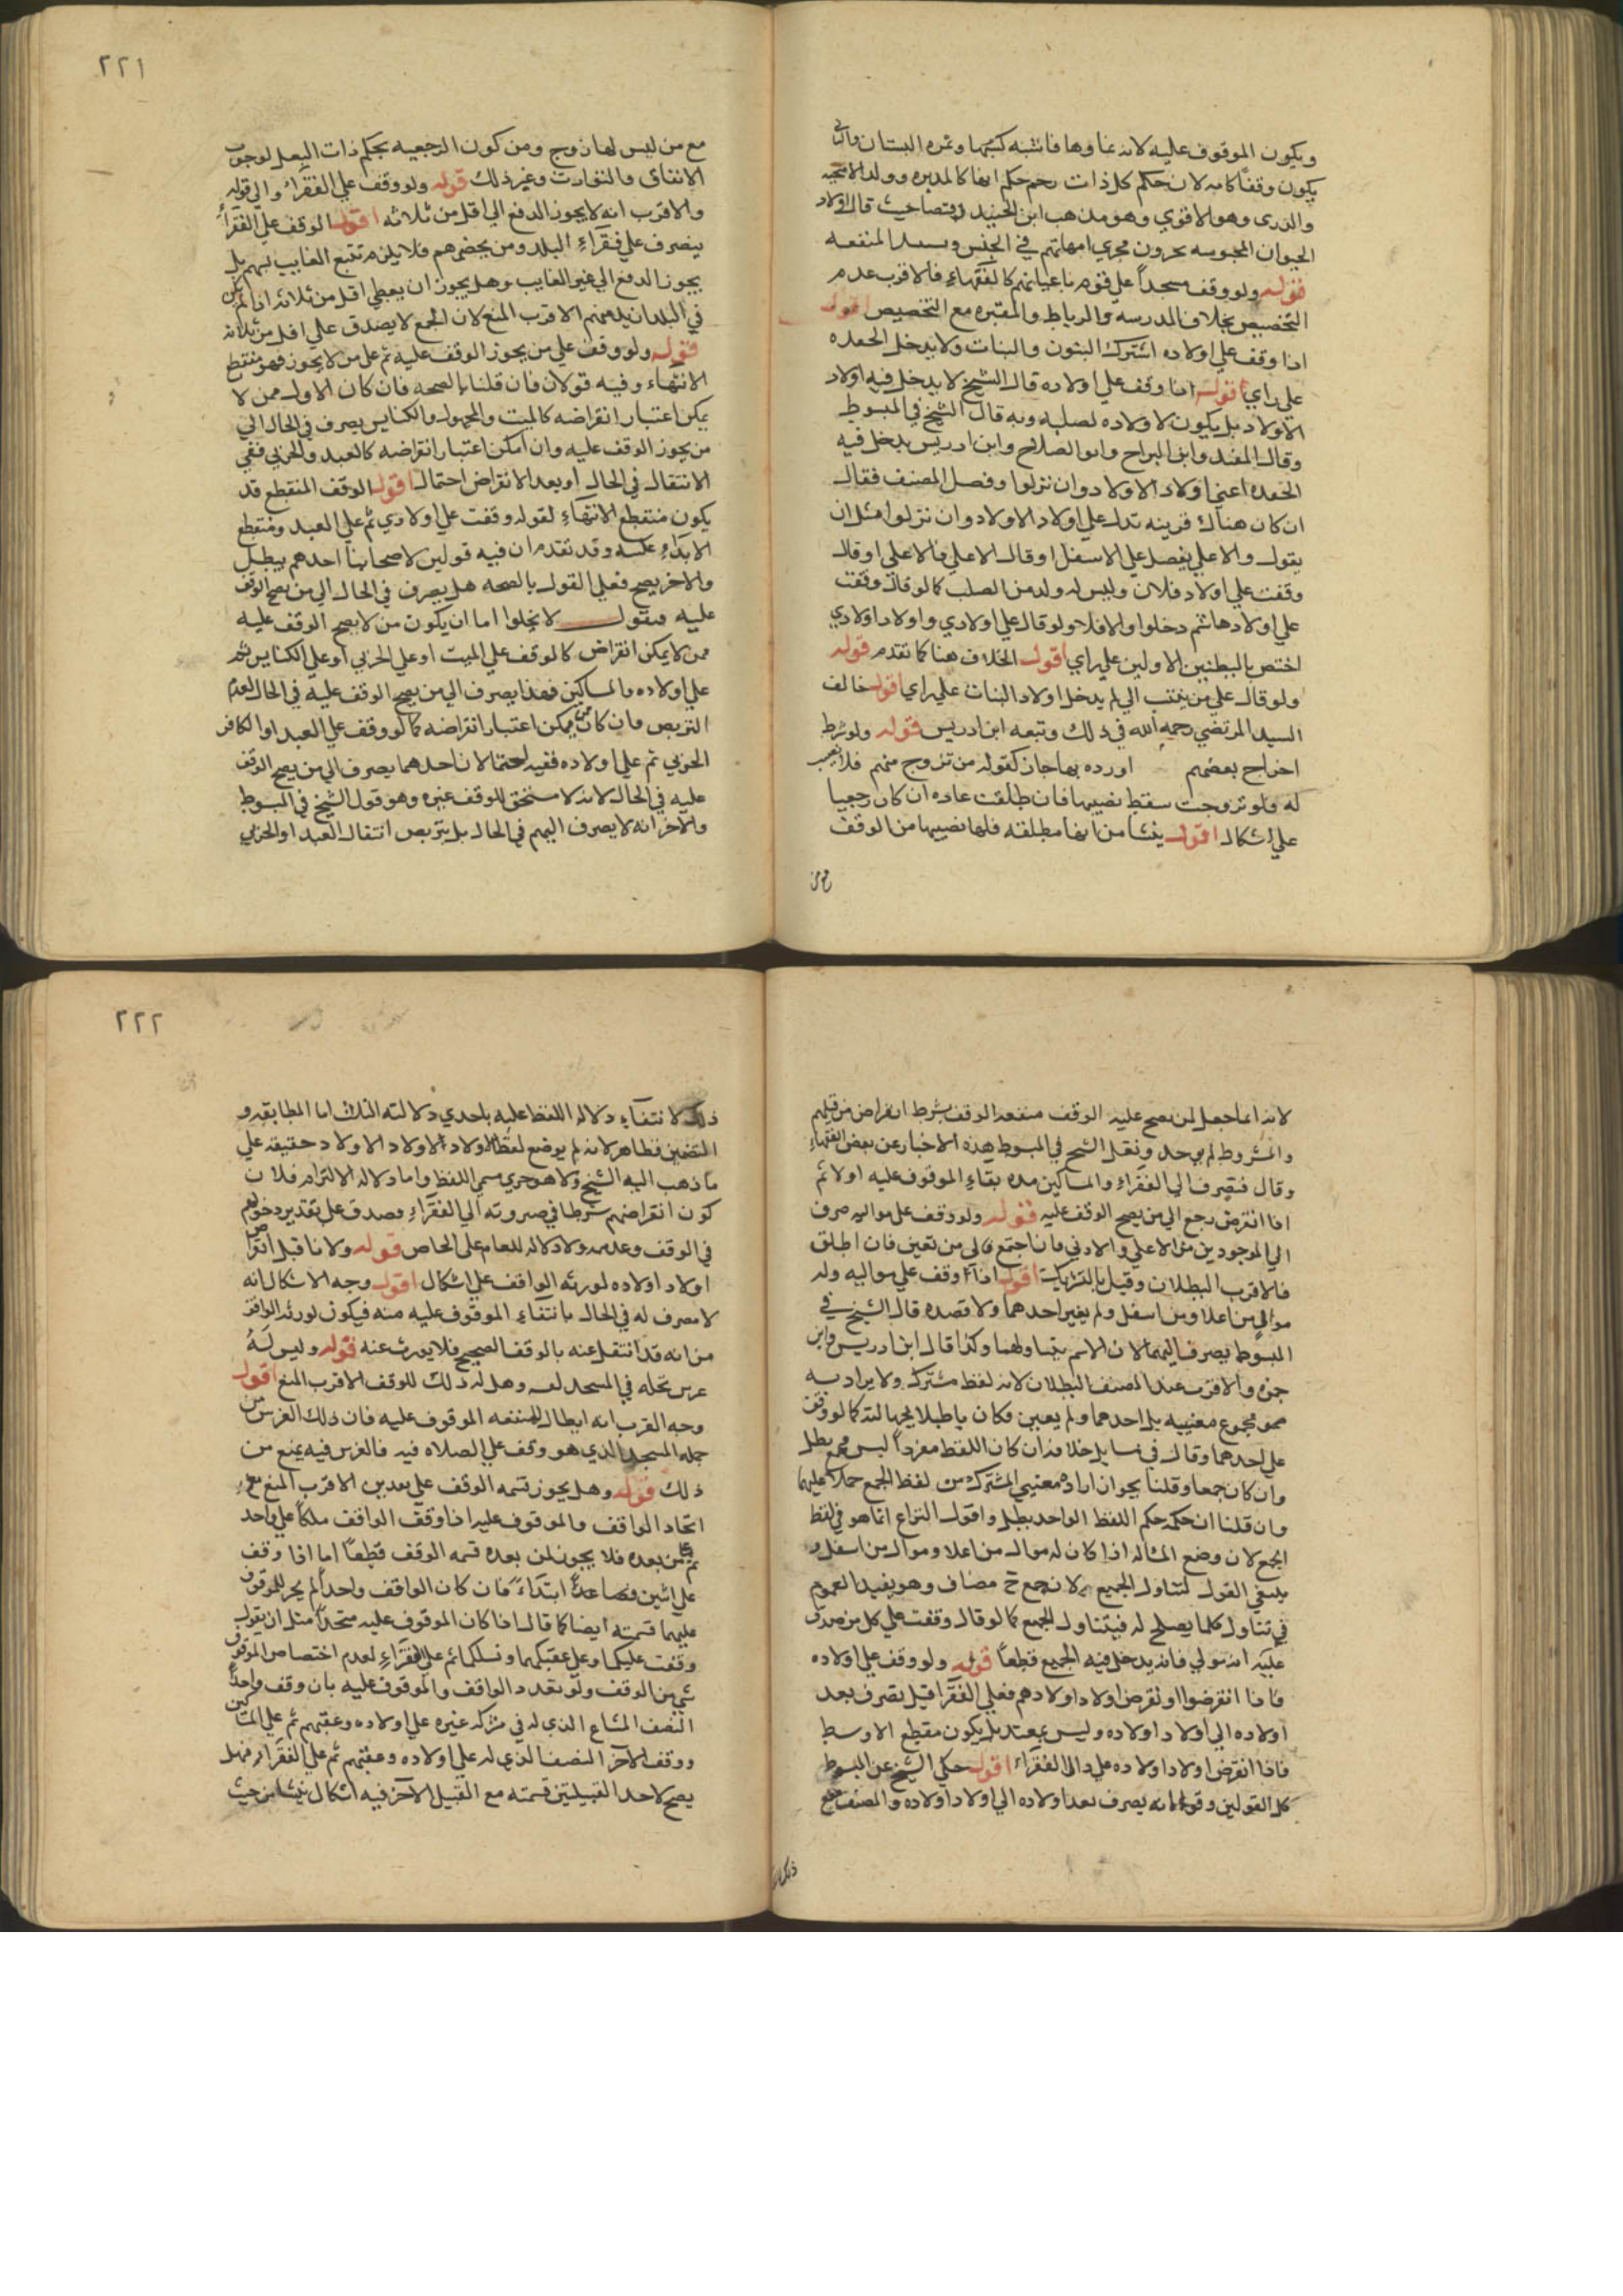 ويكون الموقوف عليه لانه نماوها فاشبه كسبها وثمره البستان والثاني
يكون وقفا كامه لان حكم كل ذات رحم حكم ابنها كالمدبره وولد الاضحيه
والذري وهو الاقوي وهو مذهب ابن الجنيد حيث قال اولاد
الحيوان المحبوسه يجرون مجري امهاتهم في الجنس وسبيل المنفعه
قوله ولو وقف مسجداً علي قوم باعيانهم كالفقهاء فالاقرب عدم
التخصيص بخلاف المدرسه والرباط والمقبره مع التخصيص قوله
اذا وقف علي اولاده اشترك البنون والبنات ولا يدخل الحفده
علي راي اقول اذا وقف علي اولاده قال الشيخ لا يدخل فيه اولاد
الاولاد بل يكون لاولاده لصلبه وبه قال الشيخ في المبسوط
وقال المفيد وابن البراج وابو الصلاح وابن ادريس يدخل فيه
الحفده اعني اولاد الاولاد وان نزلوا وفصل المصنف فقال
ان كان هناك قرينه تدل علي اولاد الاولاد وان نزلوا مثل ان
يقول والاعلي يفضل علي الاسفل او قال الاعلي فالاعلي او قال
وقفت علي اولاد فلان وليس له ولد من الصلب كما لو قال وقفت
علي اولاد هاشم دخلوا والا فلا ولو قال علي اولادي واولاد اولادي
اختص بالبطنين الاولين علي راي اقول الخلاف هنا كما تقدم قوله
ولو قال علي من ينتسب الي لم يدخل اولاد البنات علي راي اقول خالف
السيد المرتضي رحمه الله في ذلك وتبعه ابن ادريس قوله ولو شرط
اخراج بعضهم او رده بها جاز كقوله من تزوج منهم فلا نصيب
له فلو تزوجت سقط نصيبها فان طلقت عاده ان كان رجعيا
علي اشكال اقول ينشا من انها مطلقه فلها نصيبها من الوقف
ومن
٢٢١
مع من ليس لها زوج ومن كون الرجعيه بحكم ذات البعل لوجوب
الانفاق والتوارث وغير ذلك قوله ولو وقف علي الفقراء والي قوله
والاقرب انه لا يجوز الدفع الي اقل من ثلاثه اقول الوقف علي الفقراء
ينصرف علي فقراء البلد ومن يحضرهم فلا يلزم تتبع الغايب بل
يجوز الدفع الي غير الغايب وهل يجوز ان يعطي اقل من ثلاثه اذا لم يكن
في البلد ازيد منهم الاقرب المنع لان الجمع لا يصدق علي اقل من ثلاثه
قوله ولو وقف علي من يجوز الوقف عليه ثم علي من لا يجوز فهو منقطع
الانتهاء وفيه قولان فان قلنا بالصحه فان كان الاول ممن لا
يمكن اعتبار انقراضه كالميت والمجهول والكنايس يصرف في الحال الي
من يجوز الوقف عليه وان امكن اعتبار انقراضه كالعبد والحربي ففي
الانتقال في الحال او بعد الانقراض احتمال اقول الوقف المنقطع قد
يكون منقطع الانتهاء لقوله وقفت علي اولادي ثم علي العبد ومنقطع
الابتداء عكسه وقد تقدم ان فيه قولين لاصحابنا احدهم يبطل
والاخر يصح فعلي القول بالصحه هل يصرف في الحال الي من يصح الوقف
عليه فنقول لا يخلوا اما ان يكون من لا يصح الوقف عليه
ممن لا يمكن انقراض كالوقف علي الميت او علي الحربي او علي الكنايس ثم
علي اولاده والمساكين فهذا يصرف الي من يصح الوقف عليه في الحال لعدم
التربص وان كان ممن يمكن اعتبار انقراضه كما لو وقف علي العبد او الكافر
الحربي ثم علي اولاده ففيه احتمالان احدهما يصرف الي من يصح الوقف
عليه في الحال لانه لا مستحق للوقف غيره وهو قول الشيخ في المبسوط
والاخر انه لا يصرف اليهم في الحال بل يتربص انتقال العبد او الحربي
لانه انما جعل لمن يصح عليه الوقف منفعه الوقف بشرط انقراض من قبلهم
والمشروط لم يوجد ونقل الشيخ في المبسوط هذه الاخبار عن بعض الفقهاء
وقال فيصرف الي الفقراء والمساكين مده بقاء الموقوف عليه اولا ثم
اذا انقرض رجع الي من يصح الوقف عليه قوله ولو وقف علي مواليه صرف
الي الموجودين من الاعلي والادني فان اجتمع فالي من تعين فان اطلق
فالاقرب البطلان وقيل بالتشريك اقول اذا وقف علي مواليه وله
موالي من اعلا ومن اسفل ولم يعين احدهما ولا قصده قال الشيخ في
المبسوط يصرف اليهما لان الاسم يتناولهما وكذا قال ابن ادريس وابن
حمزه والاقرب عند المصنف البطلان لانه لفظ مشترك ولا يراد به
مجموع معنييه بل احدهما ولم يعين فكان باطلا لجهالته كما لو وقف
علي احدهما وقال في خلافه ان كان اللفظ مفرداً ليس بجمع بطل
وان كان جمعا وقلنا بجواز اراده معنيي المشترك من لفظ الجمع حملا عليهما
وان قلنا ان حكمه حكم اللفظ الواحد بطل واقول النزاع انما هو في لفظ
الجمع لان وضع المثاله اذا كان له موال من اعلا وموال من اسفل و
ينبغي القول لتناول الجميع لانه جمع ح مضاف وهو يفيد العموم
في تناول كلما يصلح له فيتناول الجمع كما لو قال وقفت علي كل من صدق
عليه انه مولي فانه يدخل فيه الجميع قطعاً قوله ولو وقف علي اولاده
فاذا انقرضوا وانقرض اولاد اولادهم فعلي الفقرا قيل تصرف بعد
اولاده الي اولاد اولاده وليس بمعتد بل يكون منقطع الاوسط
فاذا انقرض اولاد اولاده علي الفقراء اقول حكي الشيخ عن المبسوط
كل القولين وقولنا انه يصرف بعد اولاده الي اولاد اولاده والمصنف منع
ذلك
٢٢٢
ذلك لانتفاء دلاله اللفظ عليه باحدي دلالته الثلاث اما المطابقه و
التضمن فظاهر لانه لم يوضع لفظ الاولاد الاولاد الاولاد حقيقه علي
ما ذهب اليه الشيخ ولا هو جزي مسمي اللفظ واما دلاله الالتزام فلان
كون انقراضهم شرطا في صيرورته الي الفقراء يصدق علي تقدير دخولهم
في الوقف وعدمه ولا دلاله للعام علي الخاص قوله ولا نا قبل انقراض
اولاد اولاده لورثه الواقف علي اشكال اقول وجه الاشكال انه
لا مصرف له في الحال بانتفاء الموقوف عليه منه فيكون لورثه الواقف
من انه قد انتقل عنه بالوقف الصحيح فلا يورث عنه قوله وليس له
غرس نخله في المسجد وهل له ذلك للوقف الاقرب المنع اقول
وجه القرب انه ابطال للمنفعه الموقوف عليه فان ذلك الغرس من
جمله المسجد الذي هو وقف علي الصلاه فيه فالغرس فيه يمنع من
ذلك قوله وهل يجوز قسمه الوقف علي بعدين الاقرب المنع مع
اتحاد الواقف والموقوف عليه اذا وقف الواقف ملكا علي واحد
ثم علي من بعده فلا يجوز لمن بعده قسمه الوقف قطعاً اما اذا وقف
علي اثنين فصاعداً ابتداءً فان كان الواقف واحداً لم يجز للموقوف
عليهما قسمته ايضا كما قال اذا كان الموقوف عليه متحداً مثل ان يقول
وقفت عليكما وعلي عقبكما ونسلكما ثم علي الفقراء لعدم اختصاص الموقوف
شي من الوقف ولو تعدد الواقف والموقوف عليه بان وقف واحداً
النصف المشاع الذي له في شركه غيره علي اولاده وعقبهم ثم علي المساكين
ووقف الاخر النصف الذي له علي اولاده وعقبهم ثم علي الفقراء فهل
يصح لاحد القبيلتين قسمته مع القبيل الاخر فيه اشكال ينشا من حيث